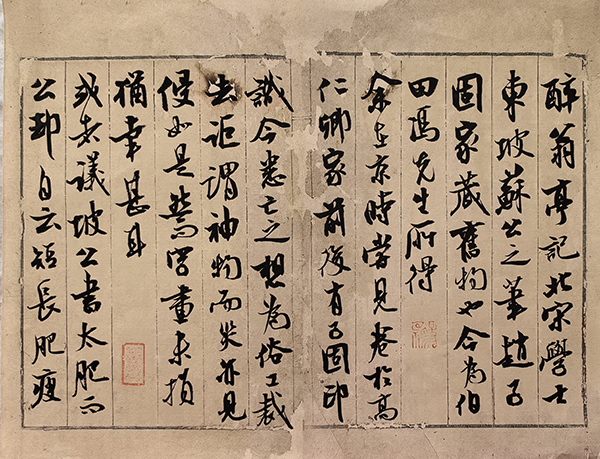 醉翁亭記北宋學士
東坡蘇公之筆趙子
固家藏舊物也今為伯
田馮先生所得
余在京時嘗見卷於高
仁卿家前後有子固印
識今悉亡之想為俗工裁
去詎謂神物而災亦見
侵如是然而字畫未損
猶幸甚耳
或者議坡公書太肥而
公卻自云短長肥瘦